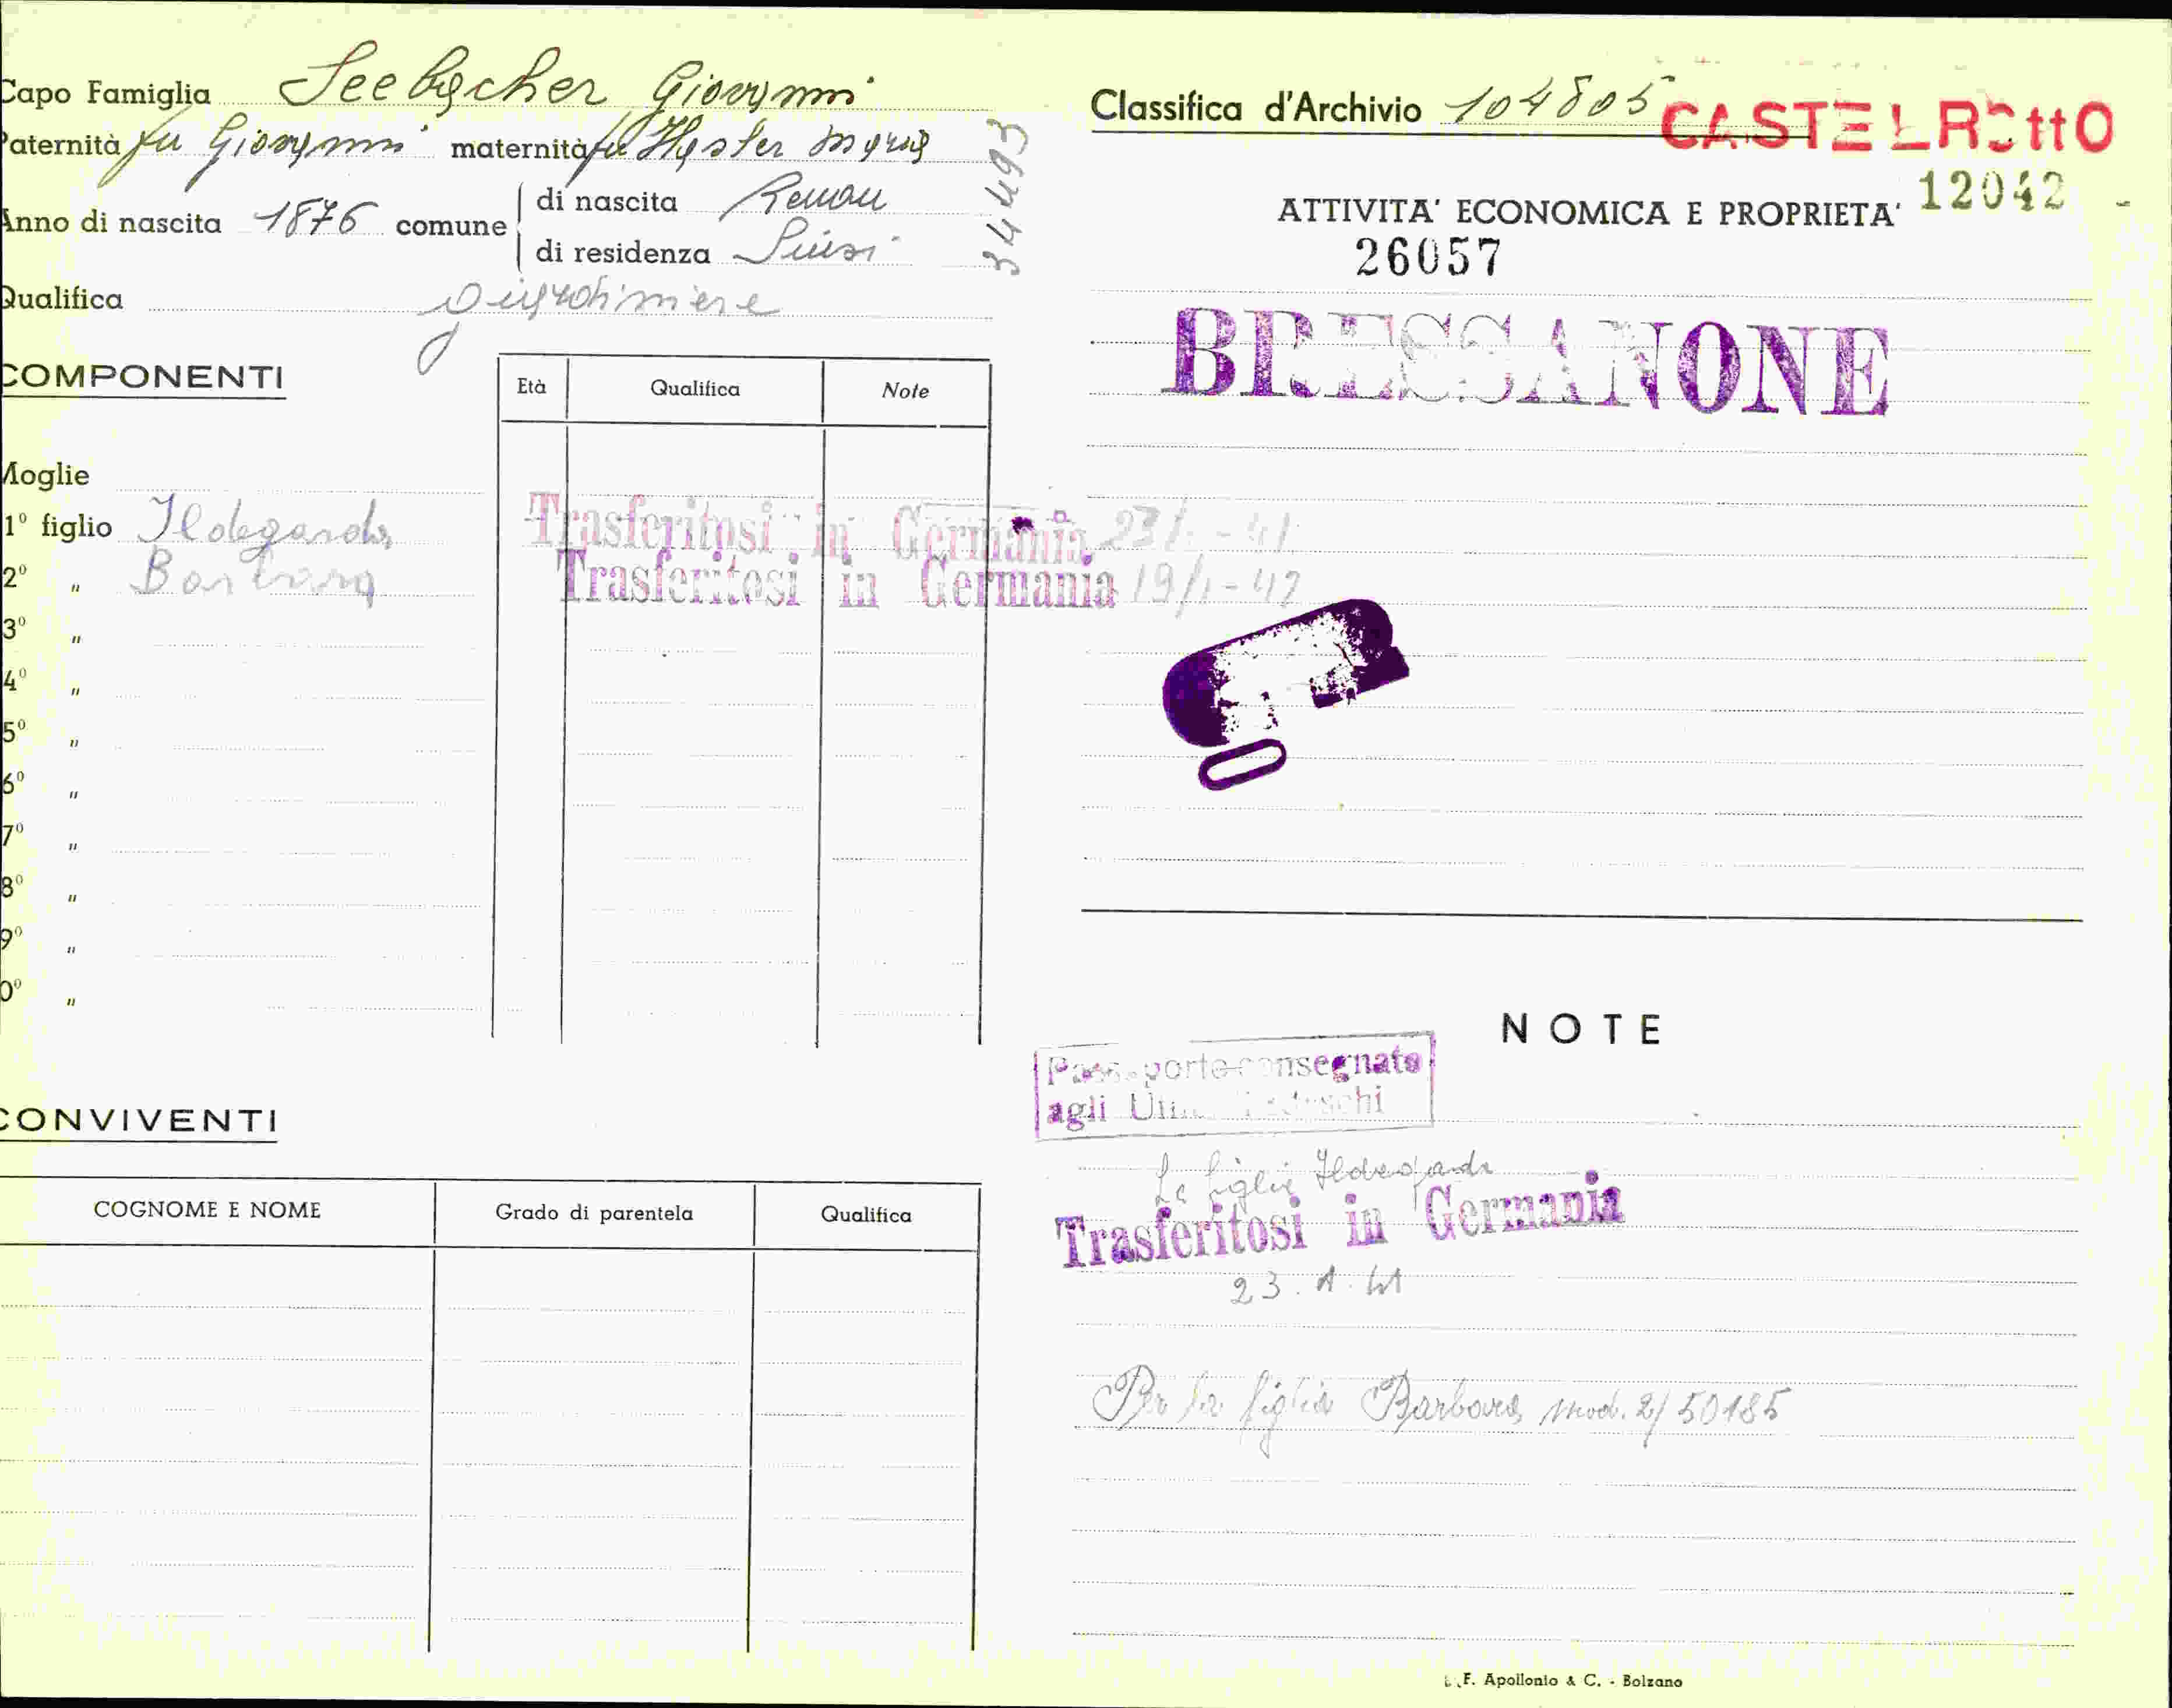 Capo Famiglia Seebacher Giovanni
Paternità fu Giovanni maternità fu Maria
Anno di nascita 1876 comune
di nascita Renon
di residenza Siusi
Qualifica giardiniere
34493
COMPONENTI
Età Qualifica Note
Moglie
1º figlio Ildegarda Trasferitosi in Germania 23/1-41
2º " Barbara Trasferitosi in Germania 19/1-42
3º "
4º "
5º "
6º "
7º "
8º "
9º "
0º "
CONVIVENTI
COGNOME E NOME Grado di parentela Qualifica
Classifica d'Archivio 104805 CASTELROttO
12042 -
ATTIVITA' ECONOMICA E PROPRIETA'
26057
BRESSANONE
NOTE
Passaporto consegnato
agli Uffici Tedeschi
La figlia Ildegarda
Trasferitosi in Germania
23.1.41
Per la figlia Barbara mod. 2/50185
F. Apollonio & C. - Bolzano